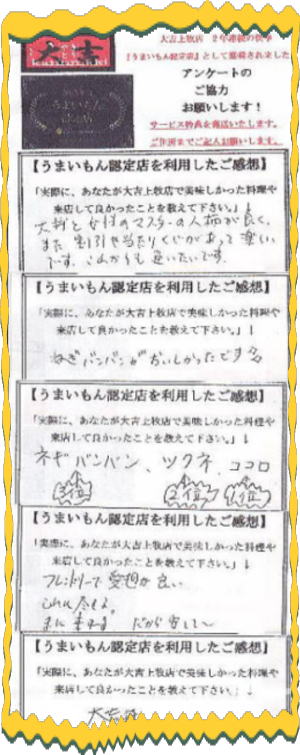 大吉
大吉上牧店 2年連続の快挙
『うまいもん認定店』として認定されました
アンケートの
ご協力
お願いします！
サービス特典を郵送いたします。
ご住所までご記入お願いします。
うまいもん
認定店
【うまいもん認定店を利用したご感想】
「実際に、あなたが大吉上牧店で美味しかった料理や
来店して良かったことを教えて下さい。」↓
大将と女性のマスターの人柄が良く、
また割引や当たりくじがあって楽しい
です。これからも通いたいです。
【うまいもん認定店を利用したご感想】
「実際に、あなたが大吉上牧店で美味しかった料理や
来店して良かったことを教えて下さい。」↓
ねぎバンバンがおいしかったです
【うまいもん認定店を利用したご感想】
「実際に、あなたが大吉上牧店で美味しかった料理や
来店して良かったことを教えて下さい。」↓
ネギバンバン、ツクネ、ココロ
3位 2位 1位
【うまいもん認定店を利用したご感想】
「実際に、あなたが大吉上牧店で美味しかった料理や
来店して良かったことを教えて下さい。」↓
フレンドリーで愛想が良い
これに尽きる。
また来ます だから安して〜
【うまいもん認定店を利用したご感想】
「実際に、あなたが大吉上牧店で美味しかった料理や
来店して良かったことを教えて下さい。」↓